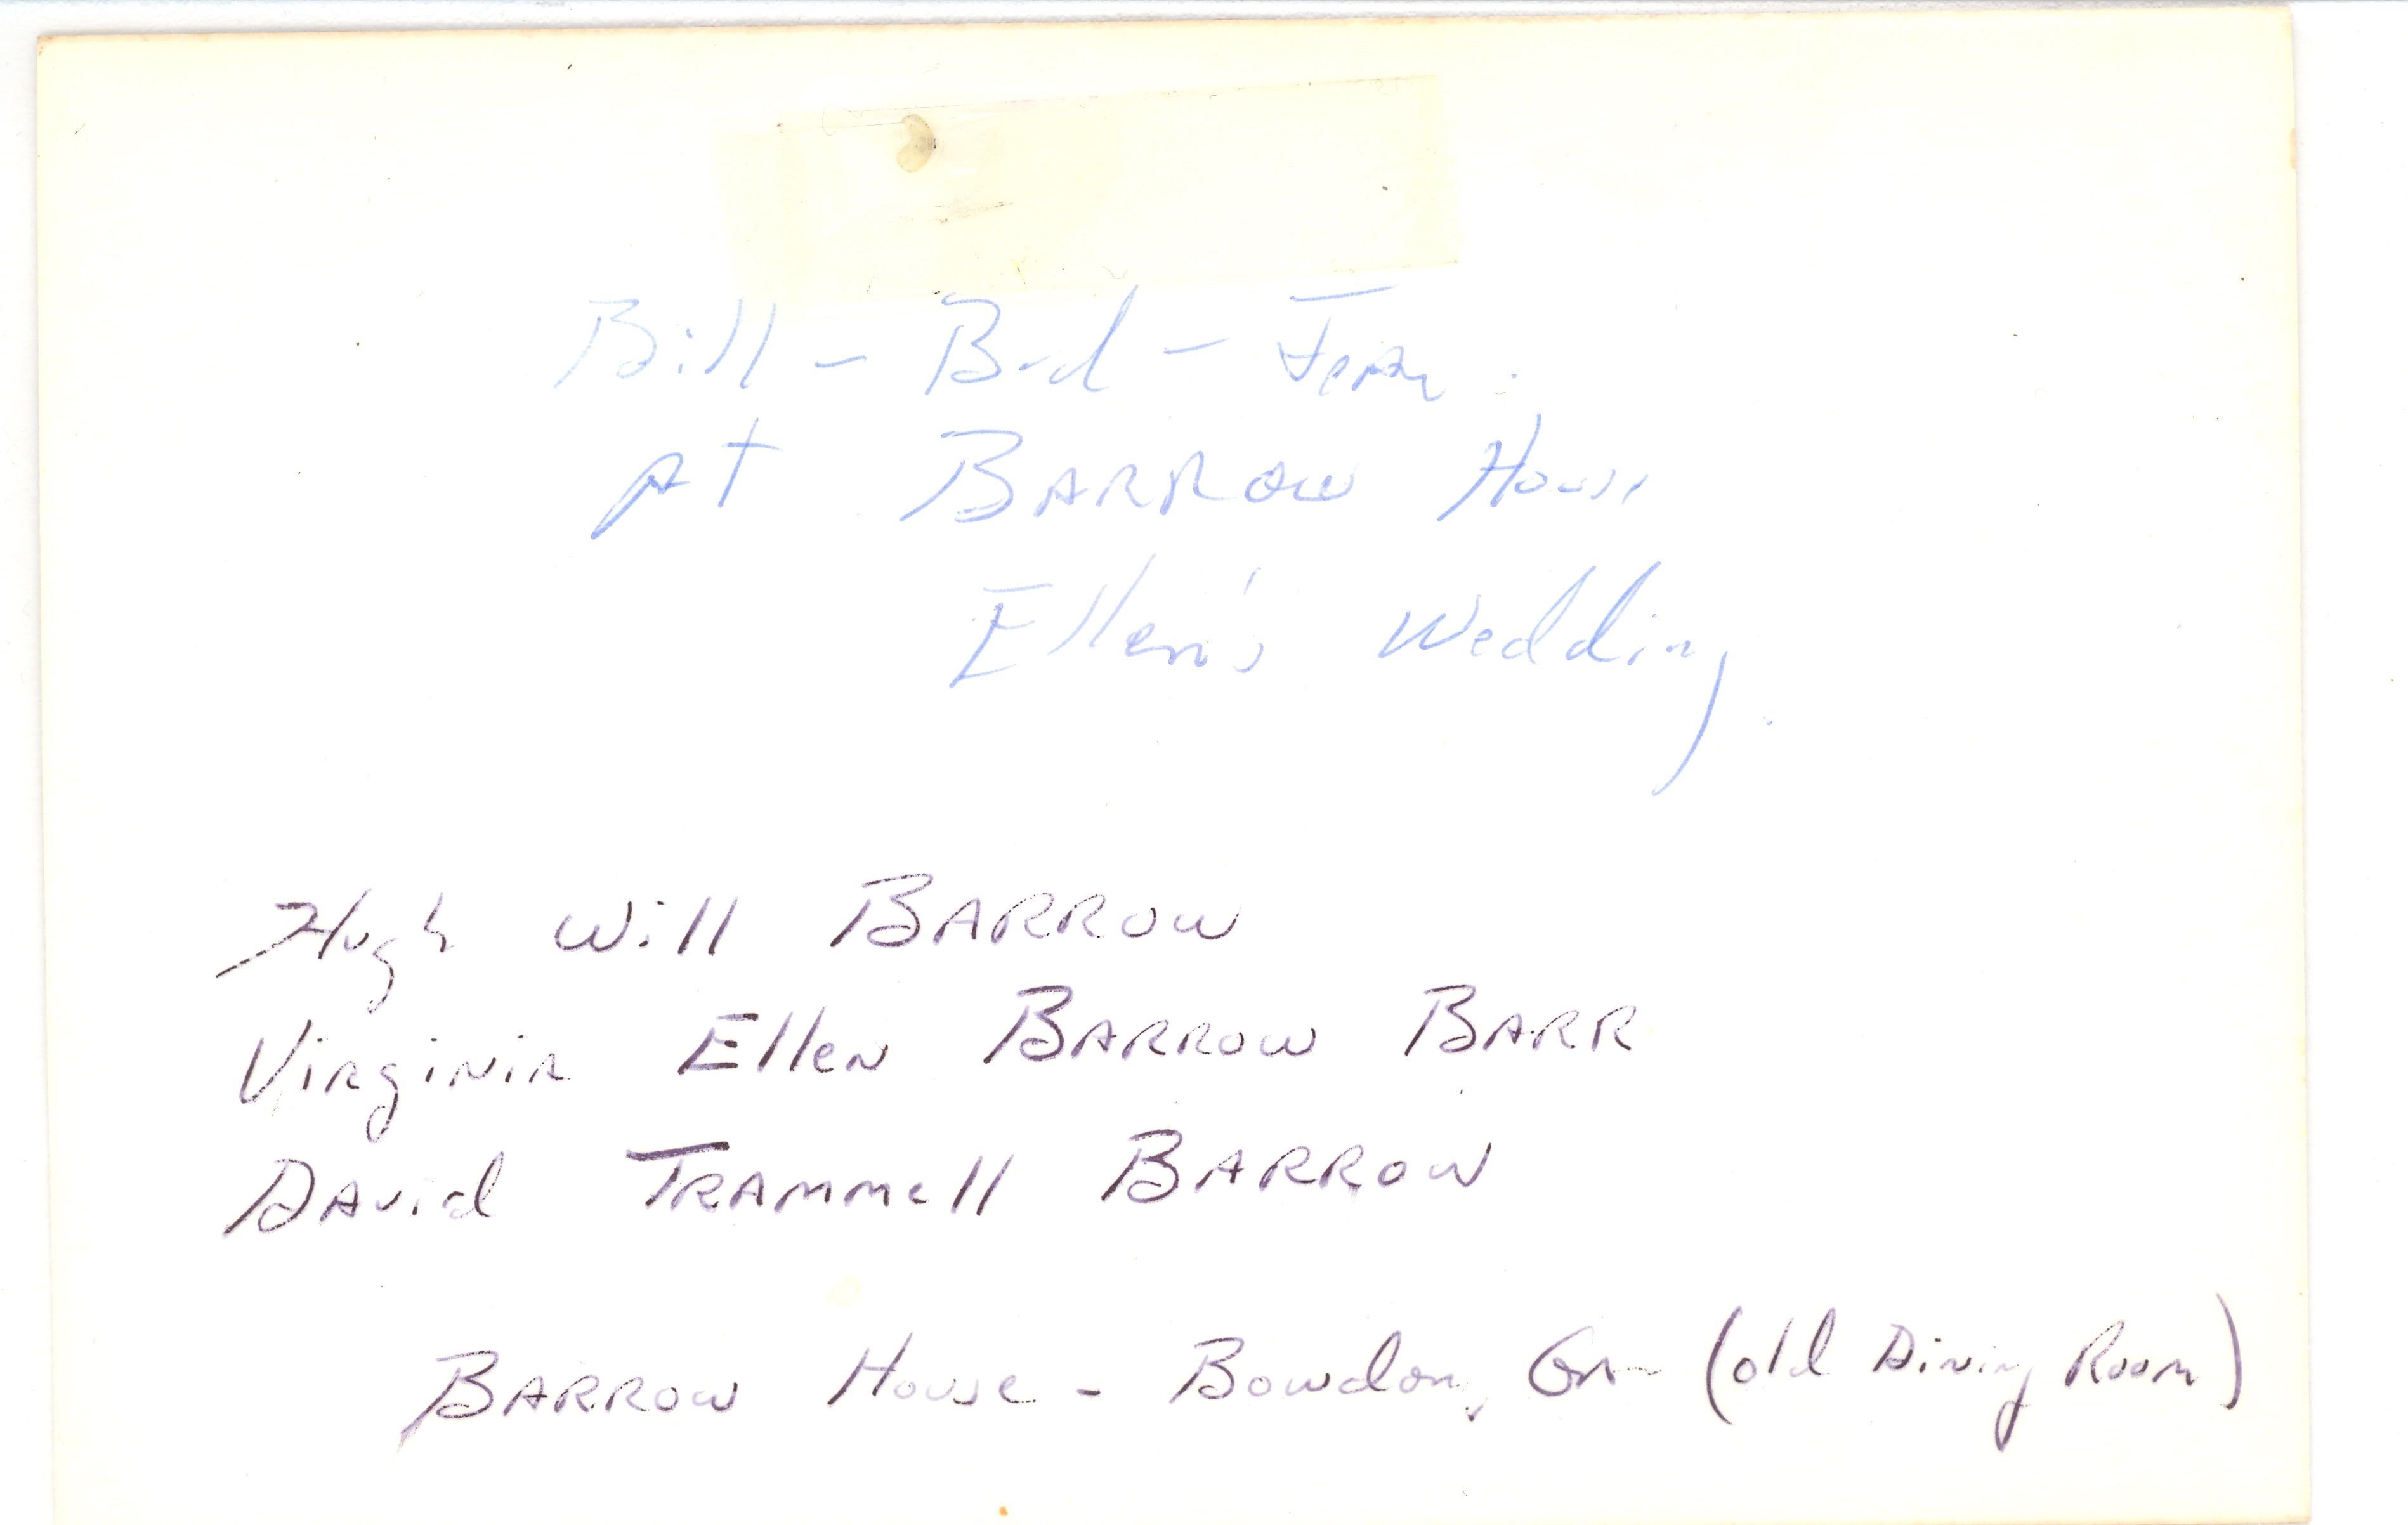 Bill - Bud -
At BARROW House
Ellen's Wedding.
Hugh Will BARROW
Virginia Ellen BARROW BARR
DAvid TRAMMell BARROW
BARROW House - Bowdon, GA (old Dining Room)